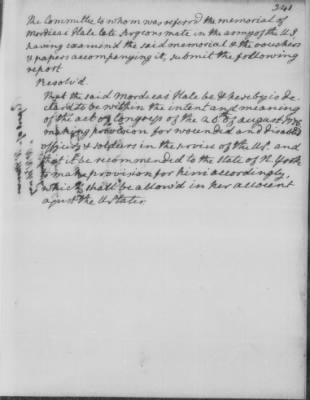 241
The Committee to whom was referrd the memorial of
Mordicai Hale late Surgeons mate in the army of the U.S
having examined the said memorial & the vouchers
& papers accompanying it, submit the following
report
Resolv'd
That the said Mordicai Hale be & hereby is de-
clared to be within the intent and meaning
of the act of Congress of the 26th of august 1776
making provision for wounded and disabled
officers & soldiers in the service of the US. and
that it be recommended to the state of N. York
to make provision for him accordingly,
which shall be allow'd in her account
against the U States